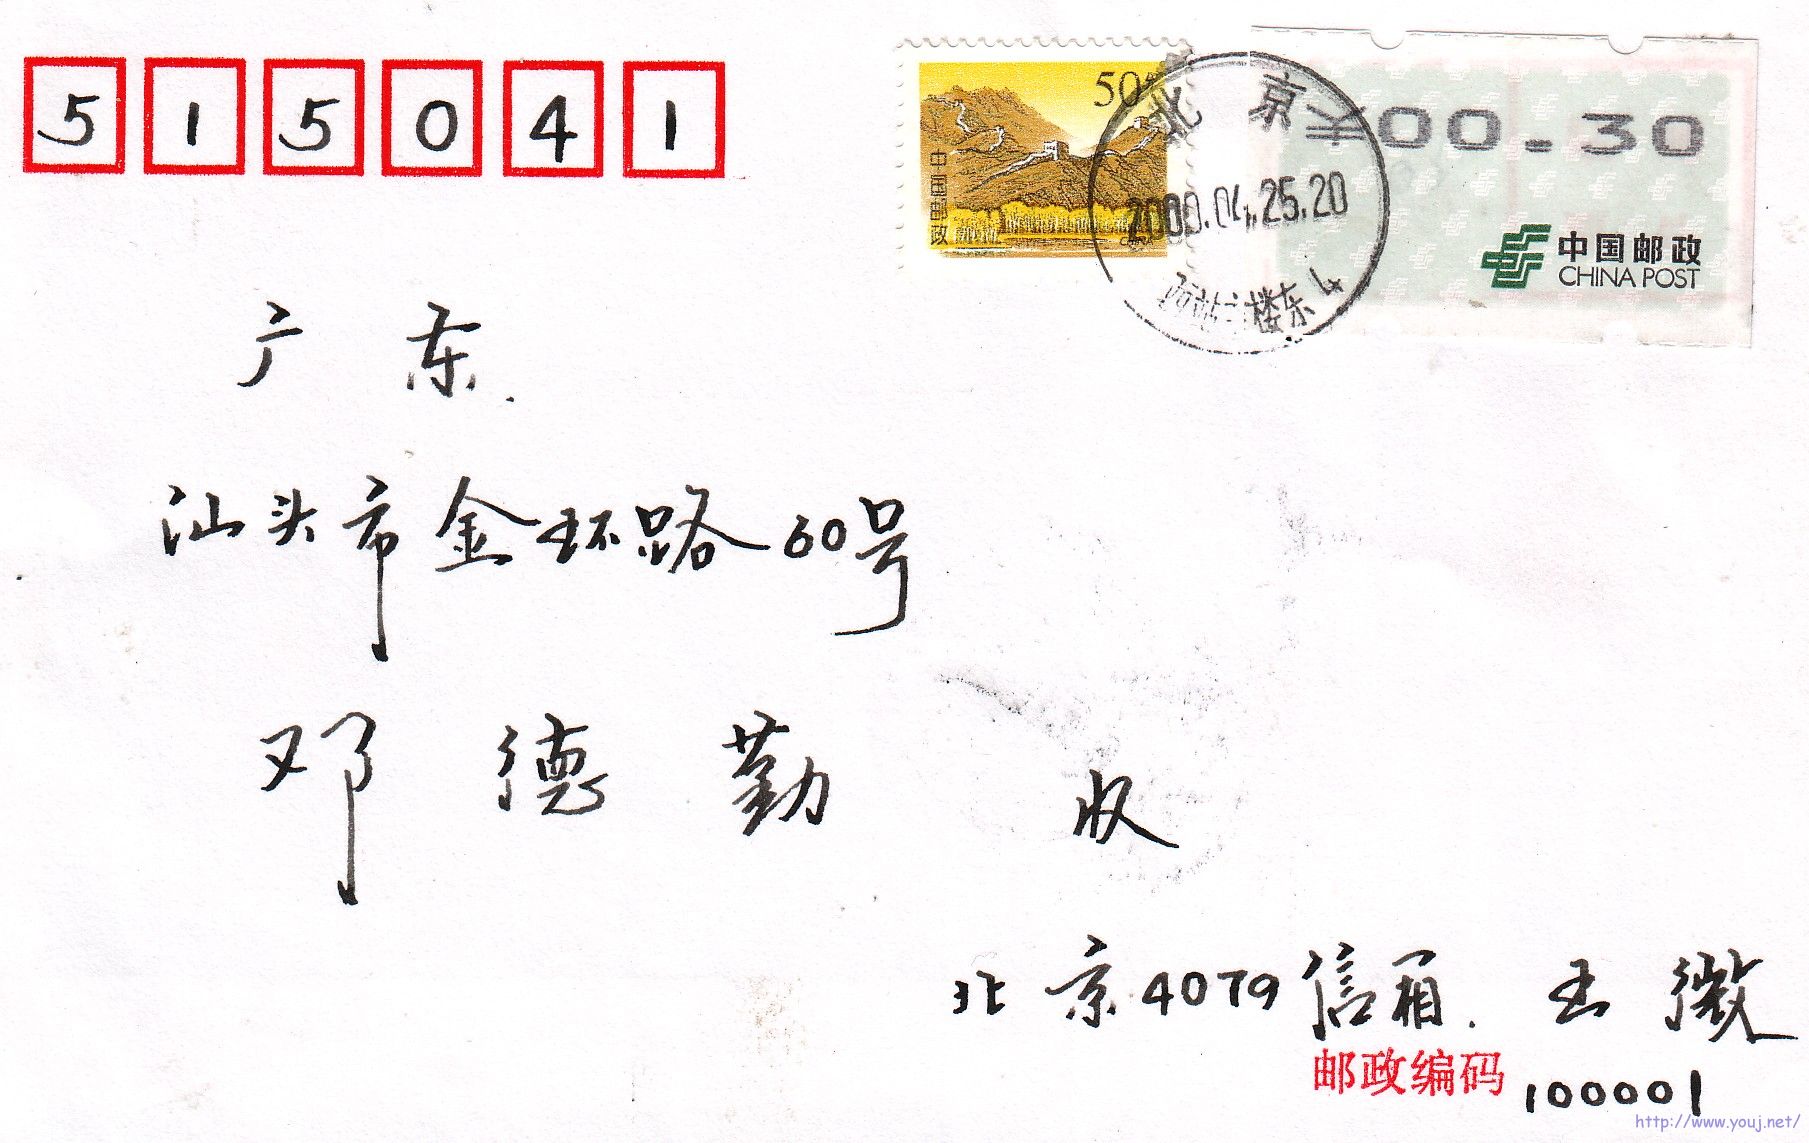 515041
50分
中国邮政
00.30
中国邮政
CHINA POST
北京
2000.04.25.20
西站主楼东 4
广东
汕头市金环路30号
邓德勤 收
北京4079信箱. 王微
邮政编码 100001
http://www.youj.net/